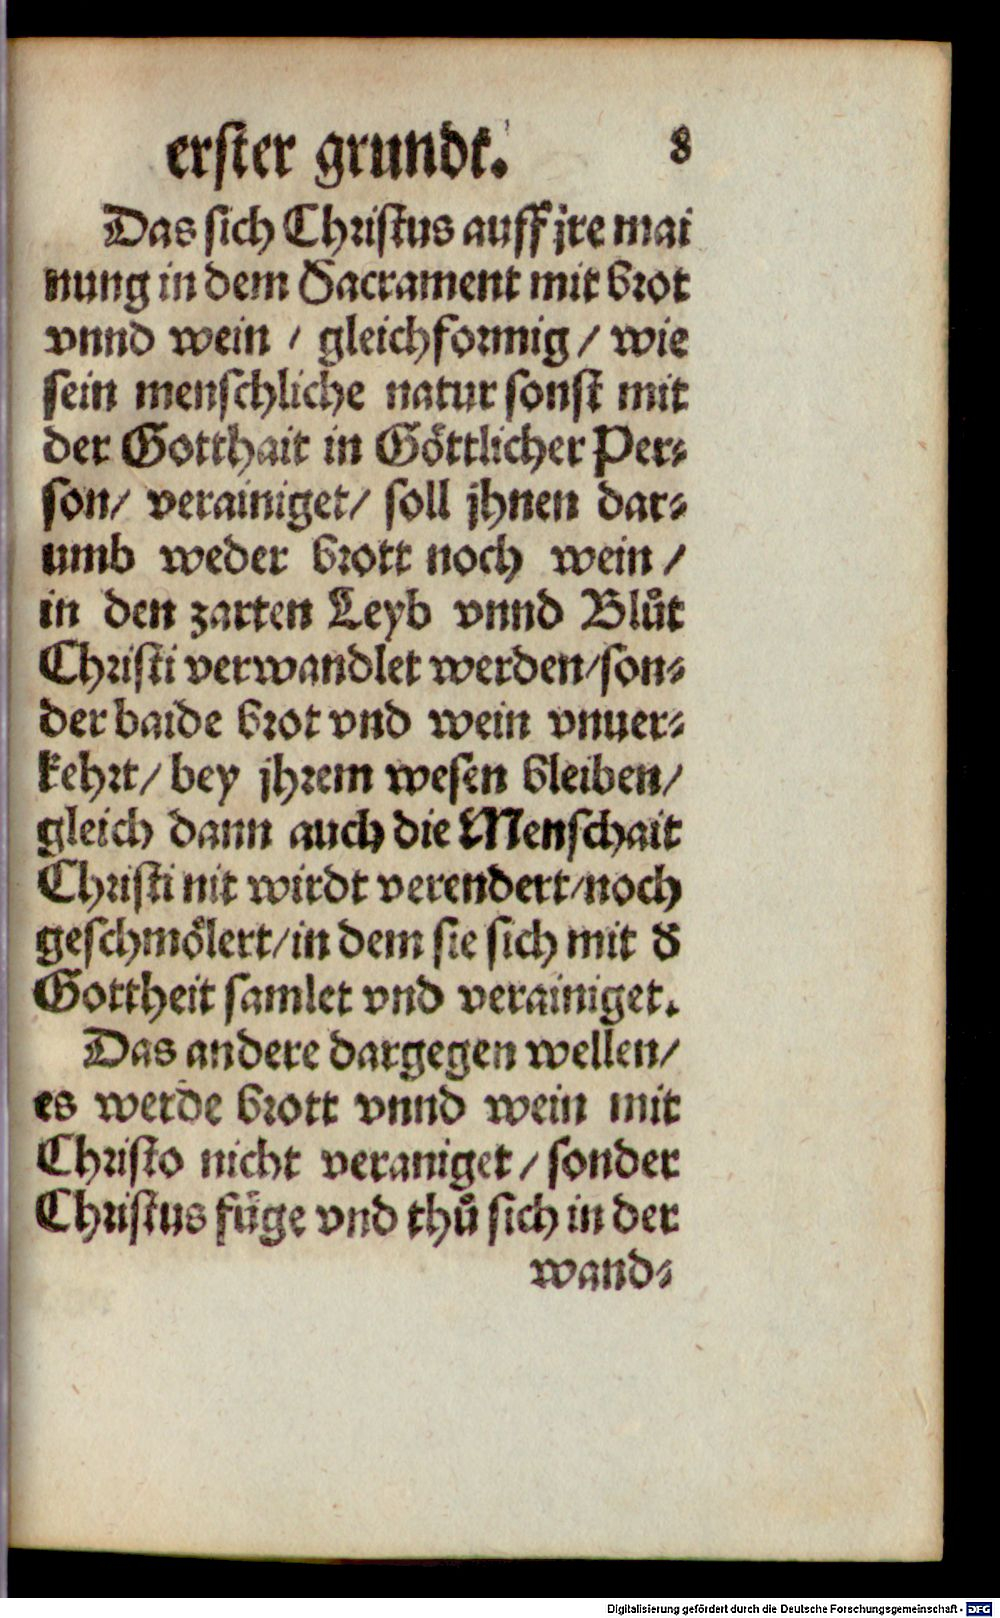 erster grundt. 8
Das sich Christus auff jre mai
nung in dem Sacrament mit brot
vnnd wein / gleichformig / wie
sein menschliche natur sonst mit
der Gotthait in Göttlicher Per⸗
son / verainiget / soll jhnen dar⸗
umb weder brott noch wein /
in den zarten Leyb vnnd Blůt
Christi verwandlet werden / son⸗
der baide brot vnd wein vnuer⸗
kehrt / bey jhrem wesen bleiben /
gleich dann auch die Menschait
Christi nit wirdt verendert / noch
geschmölert / in dem sie sich mit d
Gottheit samlet vnd verainiget.
Das andere dargegen wellen /
es werde brott vnnd wein mit
Christo nicht veraniget / sonder
Christus füge vnd thů sich in der
wand⸗
Digitalisierung gefördert durch die Deutsche Forschungsgemeinschaft - DFG